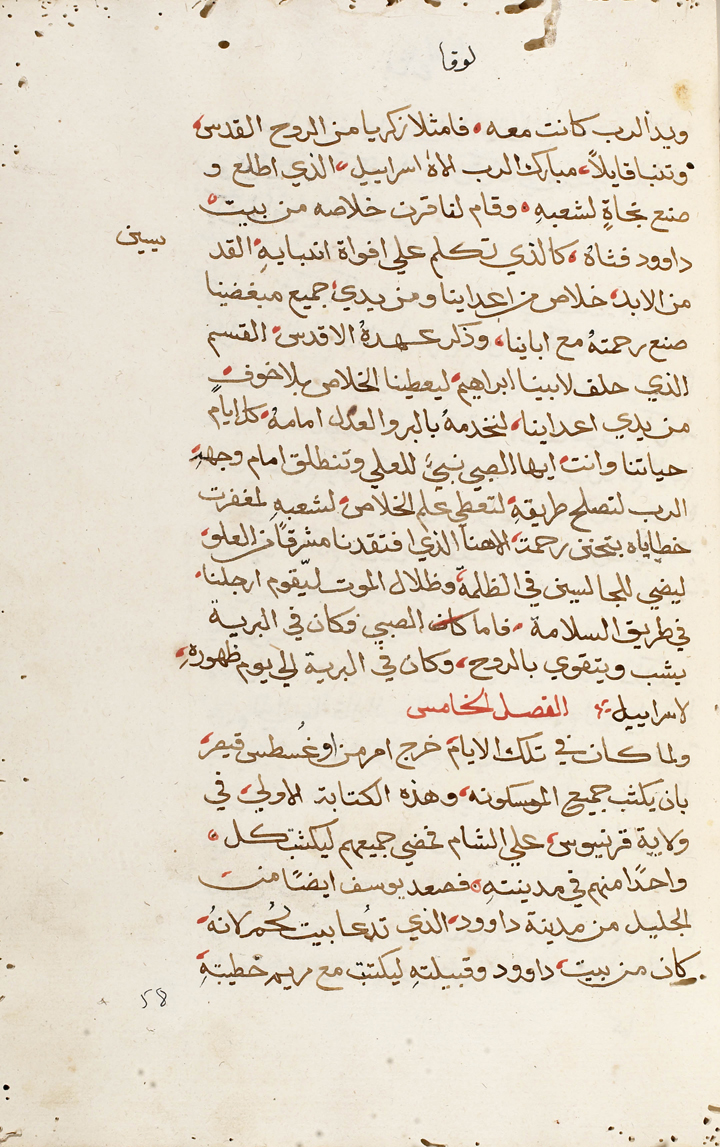 لوقا
ويد الرب كانت معه، فامتلا زكريا من الروح القدس،
وتنبا قايلاً، مبارك الرب الاه اسراييل، الذي اطلع و
صنع نجاةٍ لشعبهِ، وقام لنا قرن خلاصه من بيت
داوود فتاهُ، كالذي تكلم علي افواة انبيايهِ القد
يسين
من الابد، خلاص من اعداينا ومن يدي جميع مبغضينا
صنع رحمتهُ مع اباينا، وذكر عهدهُ الاقدس، القسم
الذي حلف لابينا ابراهيم، ليعطينا الخلاص بلا خوفٍ
من يدي اعداينا، لنخدمهُ بالبر والعدل امامهُ، كل ايام
حياتنا وانت، ايها الصبي نبيُ للعلي وتنطلق امام وجههِ
الرب لتصلح طريقهِ، لتعطي علم الخلاص، لشعبهِ لمغفرت
خطاياه بتحنن رحمت، الاهنا الذي افتقدنا مشرقاً من العلو،
ليضي للجالسين في الظلمة، وظلال الموت ليقوم ارجلنا،
في طريق السلامة، فاما كان الصبي فكان في البرية
يشب ويتقوي بالروح، وكان في البرية الي يوم ظهورهِ،
لاسراييل ܀ الفصل الخامس
ولما كان في تلك الايام، خرج امر من اوغُسطس قيصر،
بان يكتب جميع المسكونه، وهذه الكتابة الاولي، في
ولاية قرنيوس، علي الشام فمضي جميعهم ليكتتب كل،
واحدًا منهم في مدينتهِ، فصعد يوسف ايضًا من
الجليل من مدينة داوود، الذي تدُعا بيت لحُم لانهُ،
كان من بيت، داوود وقبيلتهِ ليكتتب مع مريم خطيبتهِ
58